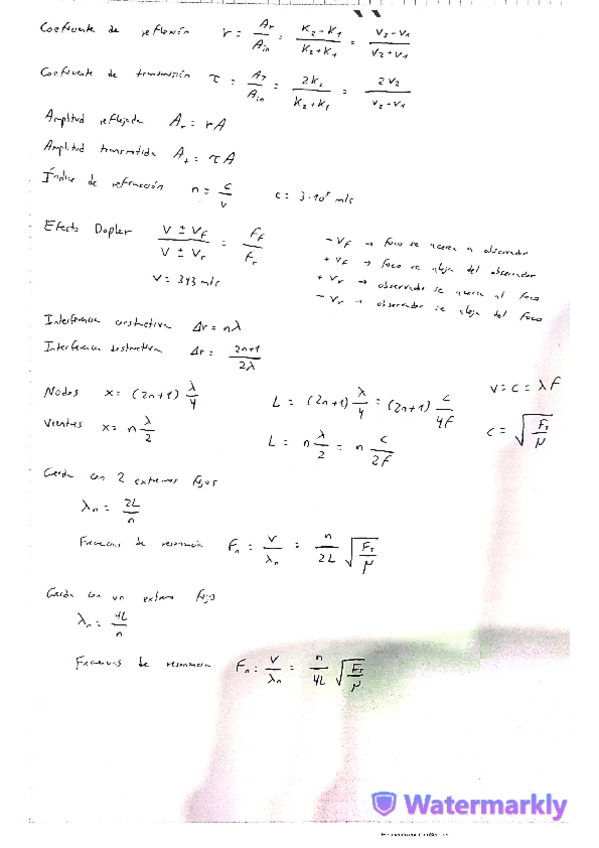 Coeficiente de reflexión r = Ar/Ain = K2-K1/K2+K1 = V2-V1/V2+V1
Coeficiente de transmisión τ = AT/Ain = 2K1/K2+K1 = 2V2/V2-V1
Amplitud reflejada Ar = rA
Amplitud transmitida At = τA
Índice de refracción n = c/v c = 3·10⁸ m/s
Efecto Dopler V ± VF / V ± Vr = FF/Fr
V = 343 m/s
- VF → foco se acerca a observador
+ VF → foco se aleja del observador
+ Vr → observador se acerca al foco
- Vr → observador se aleja del foco
Interferencia constructiva Δr = nλ
Interferencia destructiva Δr = 2n+1/2λ
Nodos x = (2n+1) λ/4 L = (2n+1) λ/4 = (2n+1) c/4F V = c = λF
Vientres x = n λ/2 L = n λ/2 = n c/2F c = √FT/μ
Cuerda con 2 extremos fijos
λn = 2L/n
Frecuencias de resonancia Fn = V/λn = n/2L √FT/μ
Cuerda con un extremo fijo
λn = 4L/n
Frecuencias de resonancia Fn = V/λn = n/4L √FT/μ
Watermarkly